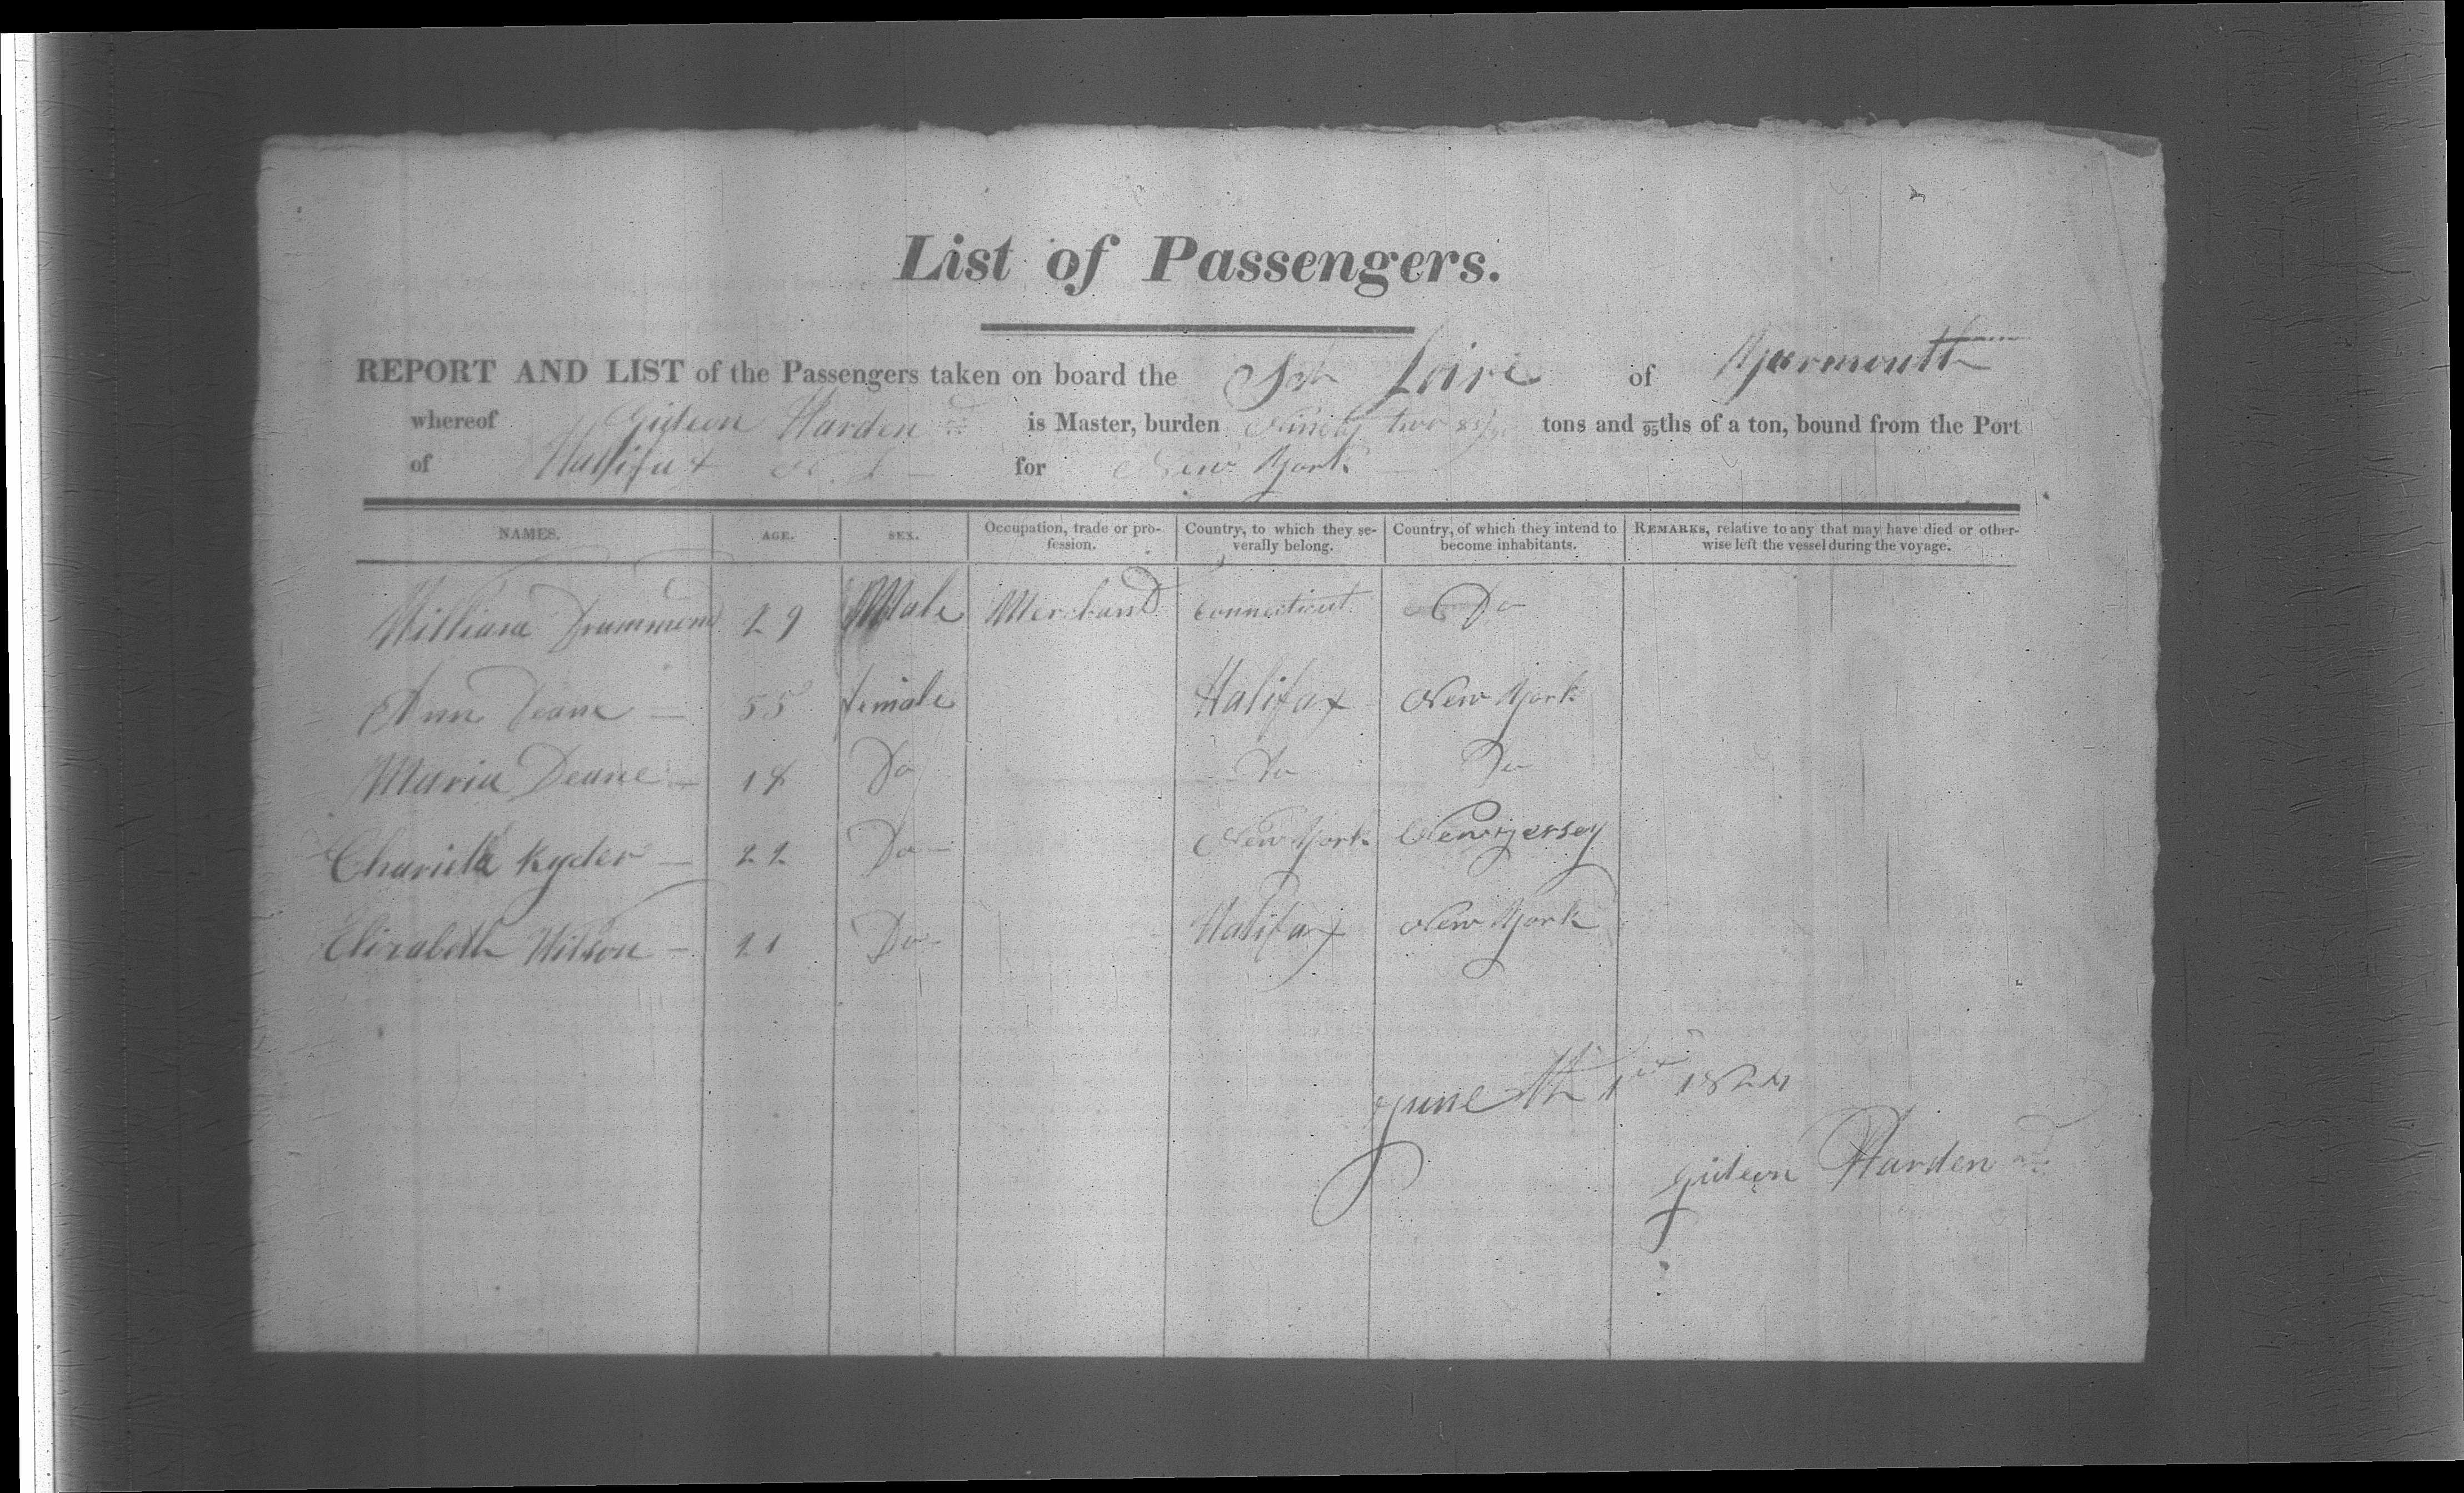 List of Passengers.
REPORT AND LIST of the Passengers taken on board the Sch Loire of Yarmouth
whereof Gideon Harden is Master, burden Ninety two tons and 95ths of a ton, bound from the Port
of Hallifax N. S. for New York
NAMES. AGE. SEX. Occupation, trade or profession. Country, to which they severally belong. Country, of which they intend to become inhabitants. REMARKS, relative to any that may have died or otherwise left the vessel during the voyage.
William Drummond 29 Male Merchant Connecticut Do
Ann Deane — 55 female Halifax New York
Maria Deane — 18 Do Do Do
Ryder — 22 Do New York New Jersey
Elizabeth Wilson — 21 Do Halifax New York
June th 1st 1824
Gideon Harden